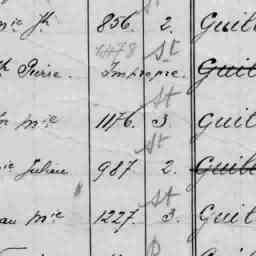 mie Jh 856. 2. Guil
1478 St
th Pierre. Impropre. Guil
St
mie 1176. 3. Guil
St
ie Julien 987. 2. Guil
St
au mie 1227. 3. Guil